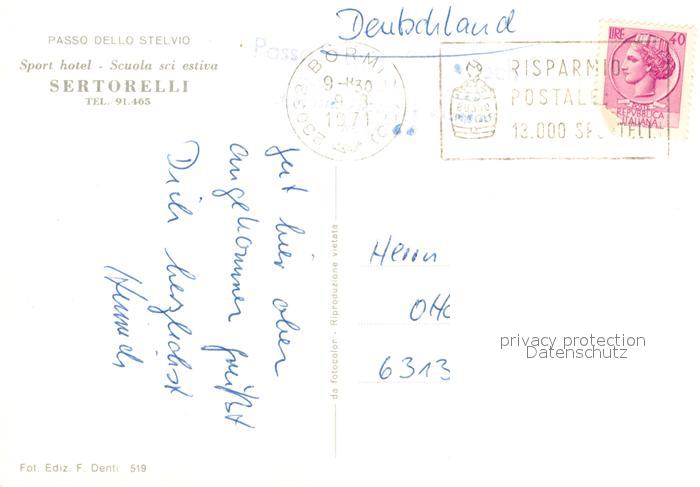 Deutschland
PASSO DELLO STELVIO
Sport hotel - Scuola sci estiva
SERTORELLI
TEL. 91.465
Passo
23032 BORMIO
9-1130
1971
RISPARMIO
POSTALE
13.000 SPORTELLI
BUONO
POSTALE
LIRE 40
POSTE
REPVBBLICA
ITALIANA
gut hier oben
angekommen grüßt
Dich herzlichst
da fotocolor - Riproduzione vietata
Herrn
Otto
6313
privacy protection
Datenschutz
Fot. Ediz. F. Denti 519